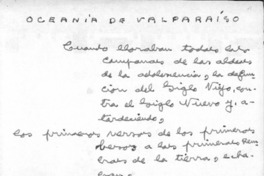 OCEANÍA DE VALPARAÍSO
Cuando lloraban todas las
campanas de las aldeas
de la adolescencia, la defun
cion del Siglo Viejo, con
tra el Siglo Nuevo y, a
terdeciendo,
los primeros versos de los primeros
besos a las primeras
de la tierra, echa